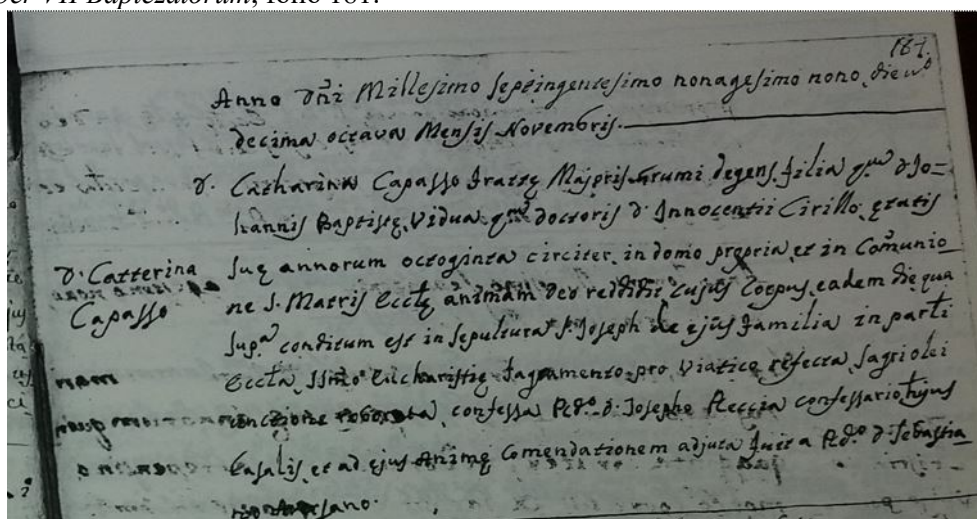 Liber VII Baptezatorum, folio 181.
187.
Anno Dñi Millesimo septingentesimo nonagesimo nono, die vº
decima octava Mensis Novembris.
D. Catharina Capasso Fratte Majoris Grumi degens, filia qm D. Jo=
hannis Baptiste, Vidua qm doctoris D. Innocentii Cirillo, etatis
D. Catterina
Capasso
sue annorum octoginta circiter, in domo propria, et in Comunio
ne S. Matris Eccle, animam Deo reddidit cujus Corpus, eadem die qua
supª conditum est in sepultura S. Joseph de ejus familia in parti
Eccla, SSmo Eucharistie Sagramento pro Viatico refecta, sagri olei
unctione roborata, confessa Rdº D. Josepho Reccia confessario hujus
Casalis, et ad ejus Anime Comendationem adjuta fuit a Rdº D. Sebastia
no